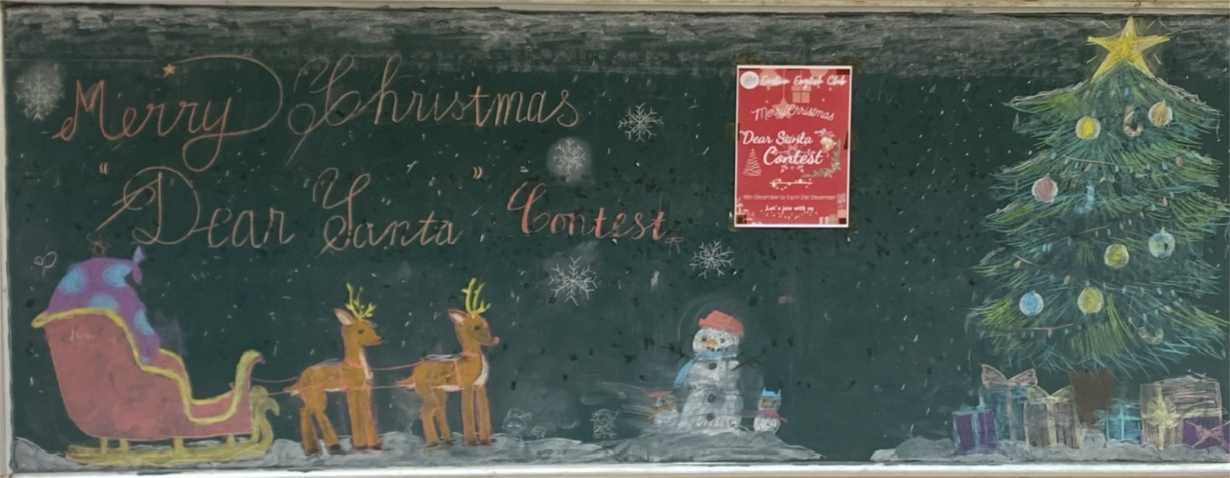 Merry Christmas
"Dear Santa" Contest
English Club
Merry Christmas
Dear Santa
Contest
Let's join with us